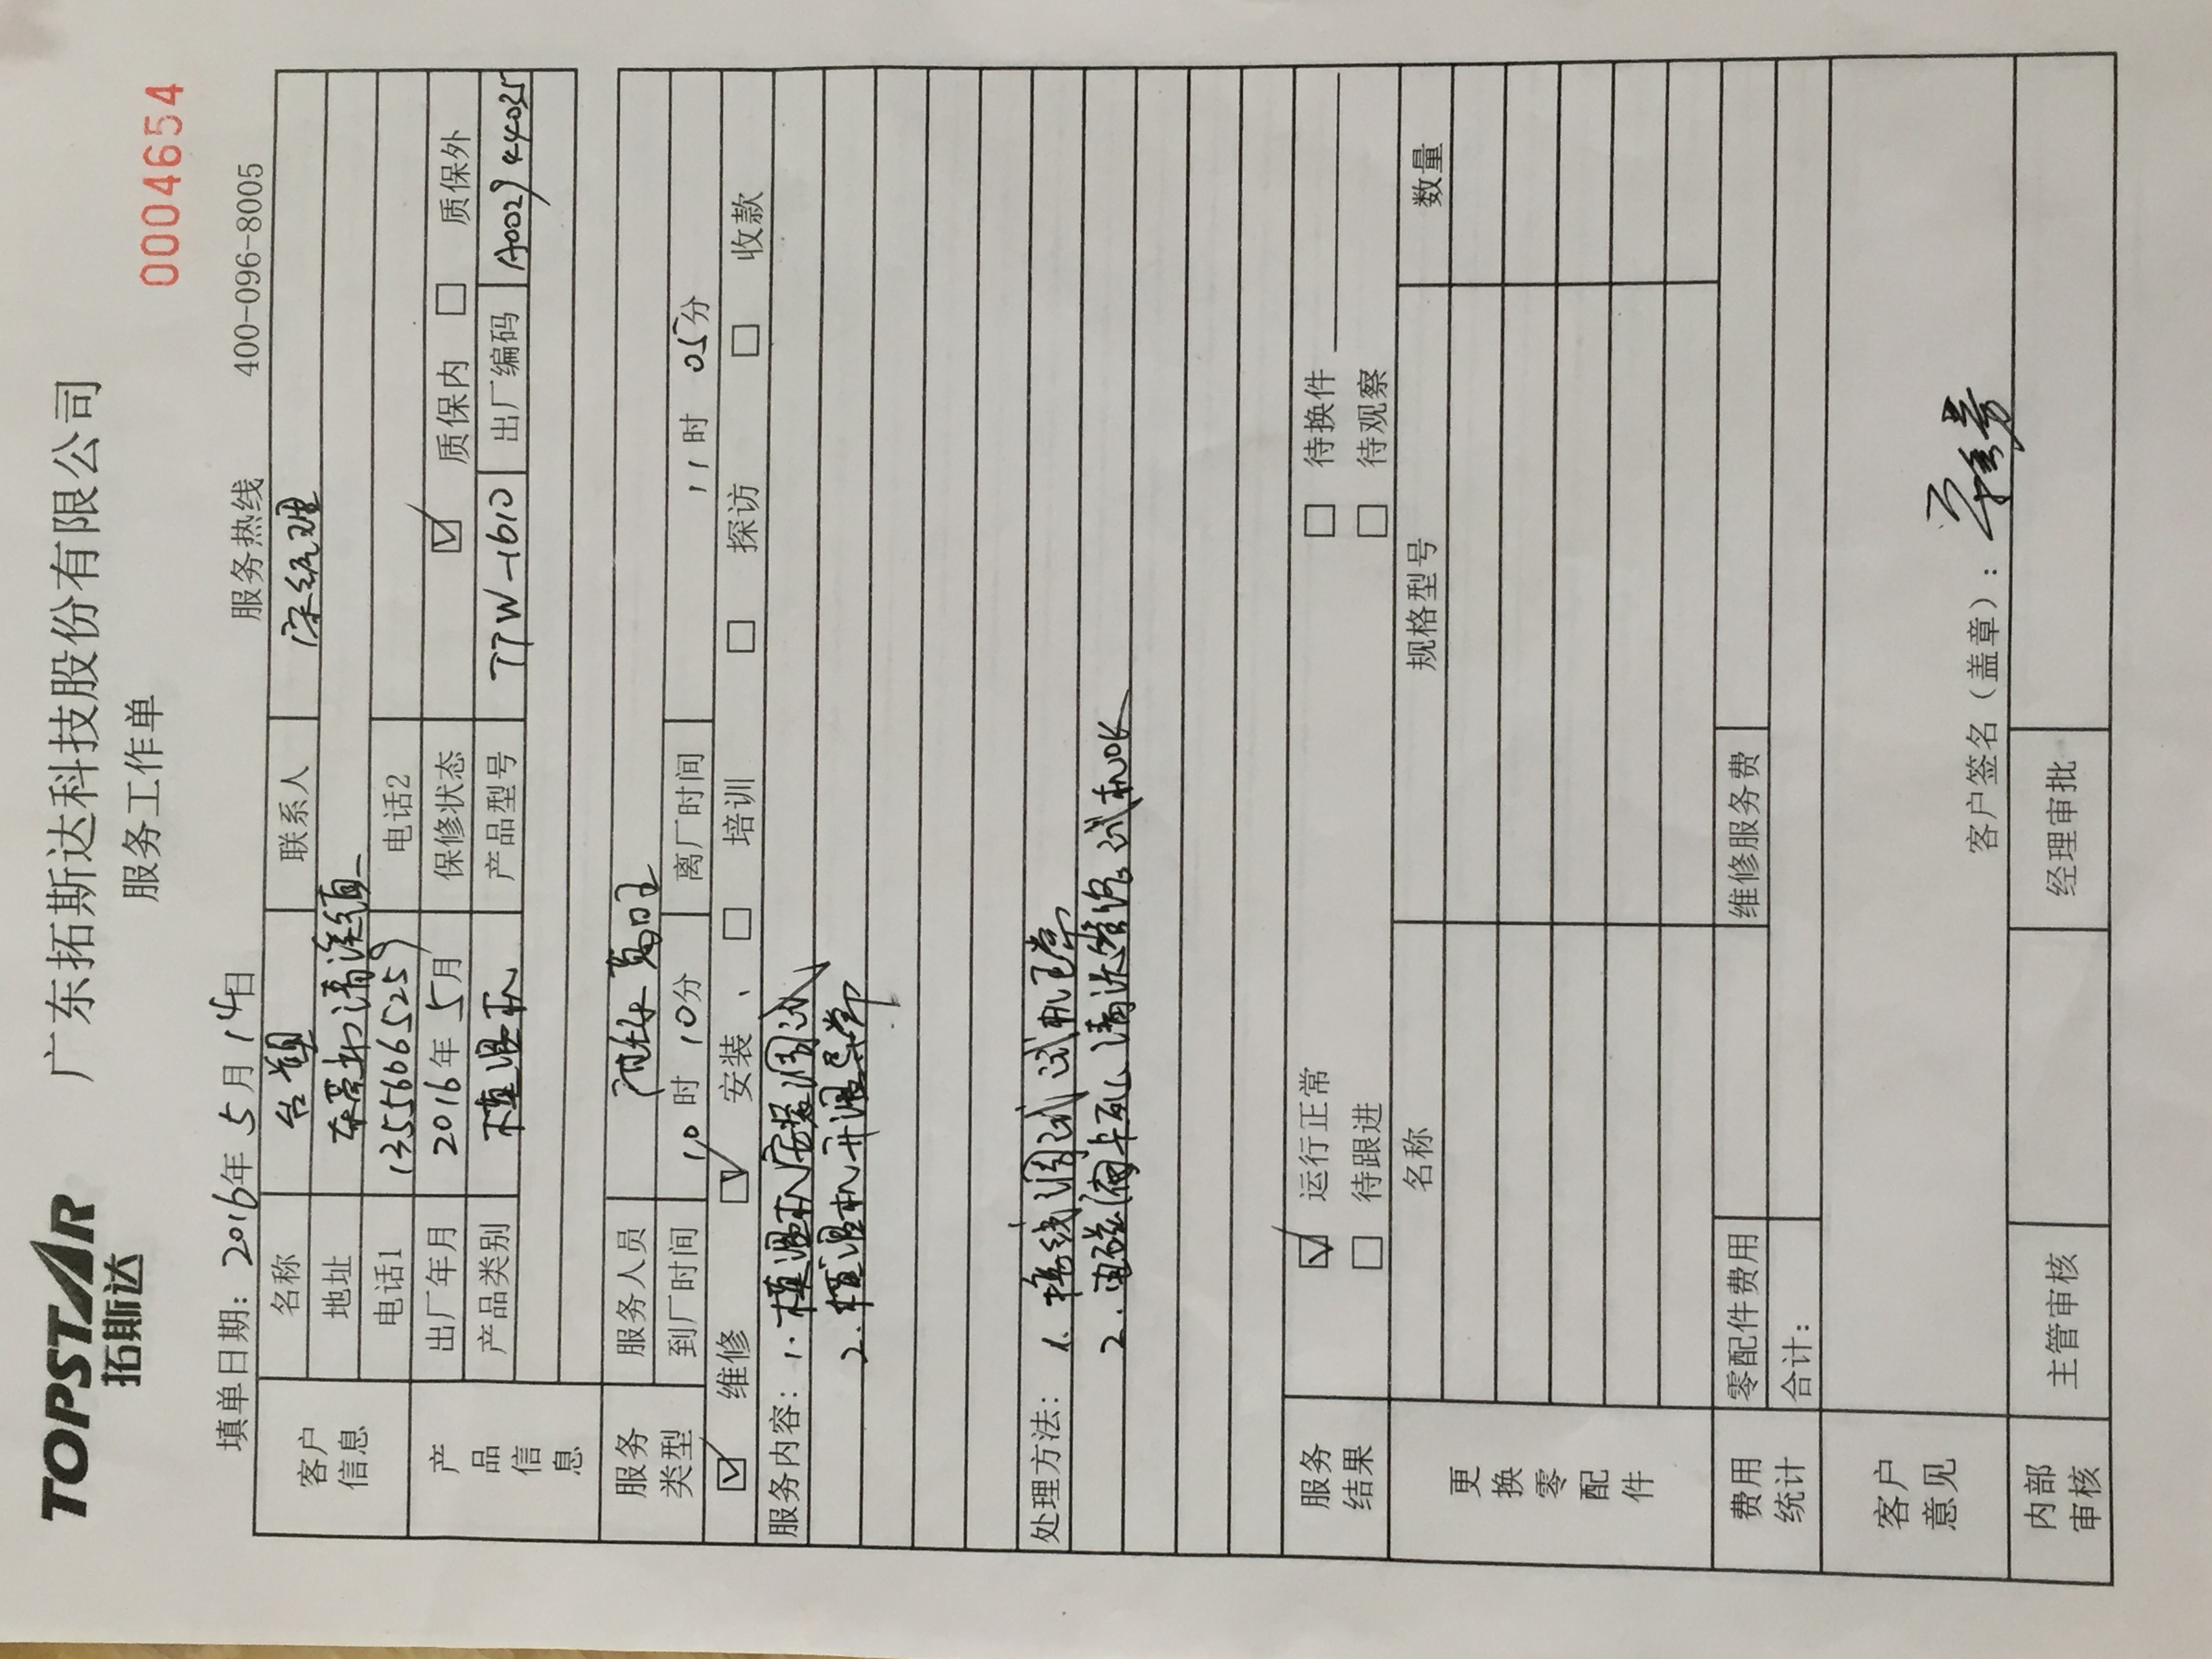 TOPSTAR 拓斯达
广东拓斯达科技股份有限公司
服务工作单
0004654
填单日期：2016年 5月 14日 服务热线 400-096-8005
客户信息
名称 台塑 联系人 经理
地址 清溪
电话1 13556065259 电话2
产品信息
出厂年月 2016年 5月 保修状态 ☑ 质保内 □ 质保外
产品类别 模温机 产品型号 TTW-1610 出厂编码 A002944035
服务类型
服务人员
到厂时间 10时 10分 离厂时间 11时 05分
☑ 维修 ☑ 安装、 □ 培训 □ 探访 □ 收款
服务内容： 1.模温机安装调试
2.模温机升温异常
处理方法： 1.接线调试试机正常
2.电磁阀卡死，清洗维修。试机OK
服务结果
☑ 运行正常 □ 待换件
□ 待跟进 □ 待观察
更换零配件
名称 规格型号 数量
费用统计
零配件费用 维修服务费
合计：
客户意见
客户签名（盖章）：
内部审核
主管审核 经理审批